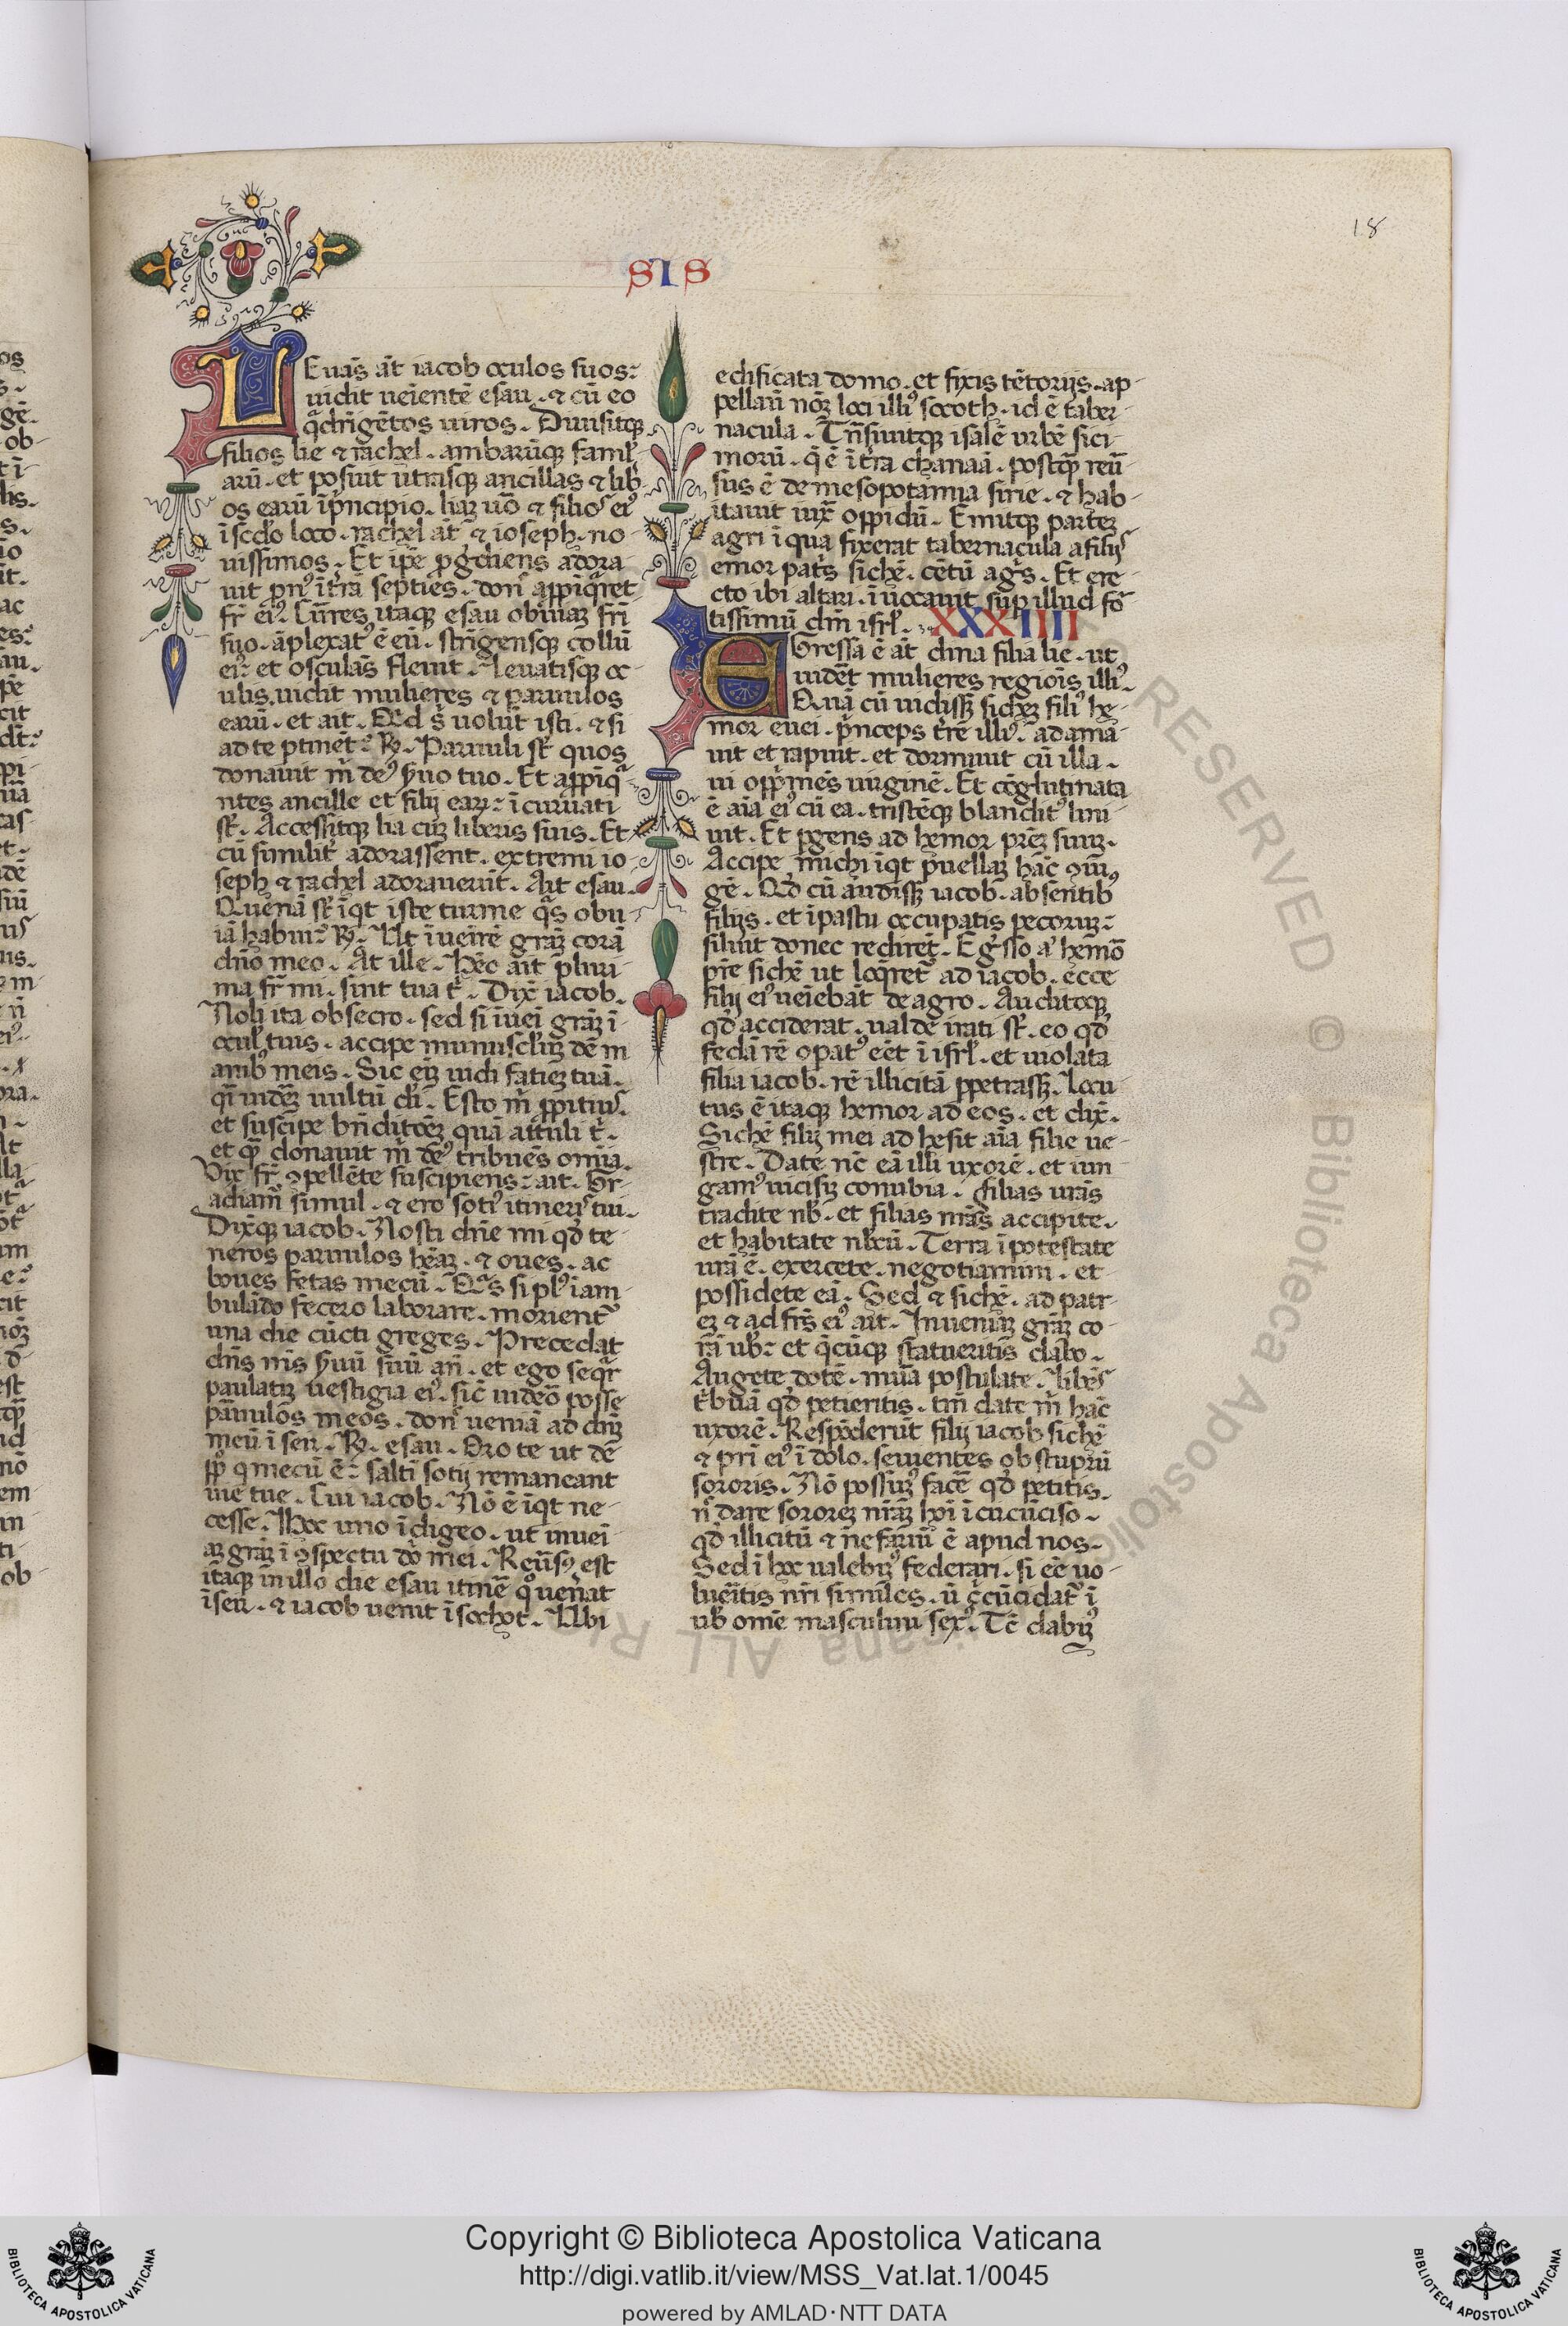 18
SIS
LEuãs ãt iacob oculos suos:
uidit ueientẽ esau. ⁊ cũ eo
q̃drigẽtos uiros. Diuisitqꝫ
filios lie ⁊ rachel. ambarũqꝫ famľ
arũ. et posuit ut̃rasqꝫ ancillas ⁊ lib
os earũ ĩpncipio. liaꝫ uo̅ ⁊ filios eiꝰ
ĩ sc̃do loco. rachel ãt ⁊ ioseph. no
uissimos. Et ip̃e ꝓgrediens adora
uit pn̅ꝰ ĩ tr̃ã septies. don̅ apꝓiq̃ret
fr̃ eiꝰ. Cur̃res itaqꝫ esau obuiaꝫ fr̃i
suo. ãplexatꝰ ẽ eũ. stringensqꝫ collũ
eiꝰ et osculãs fleuit. Leuatisqꝫ oc
ulis uidit mulieres ⁊ paruulos
earũ. et ait. Qd s̃ uolũt isti. ⁊ si
ad te ꝑtinẽt: R̃. Paruuli st̃ quos
donauit m̃ deꝰ s̃uo tuo. Et apꝓiq̃
ntes ancille et filij eaꝝ: ĩcuruati
st̃. Accessitqꝫ lia cũꝫ liberis suis. Et
cũ similit̃ adorassent. extremi io
seph ⁊ rachel adorauerũt. Ait esau.
Quenã st̃ ĩqt iste turme q̃s obu
iã habui: R̃. Ut ĩueĩrẽ gr̃aꝫ corã
dn̅o meo. At ille. Hẽo ait pluri
ma fr̃ mi. sint tua t̃. Dix̃ iacob.
Noli ita obsecro. sed si ĩuei gr̃aꝫ ĩ
oculꝰ tuis. accipe munuscl̃uꝫ dẽ m
anibꝰ meis. Sic eĩꝫ uidi fatiẽꝫ tuã.
q̃i uiderẽꝫ uultũ di̅. Esto m̃ ꝓpitiuꝰ.
et suscipe bn̅ditiõeꝫ quã attuli t̃.
et q̃ꝫ donauit m̃ deꝰ tribuẽs omĩa.
Vix fr̃e ꝯpellẽte suscipiens: ait. Gr
adiam̃ simul. ⁊ ero sotiꝰ itinerꝰ tui.
Dix̃qꝫ iacob. Nosti dn̅e mi qđ te
neros paruulos hẽaꝫ. ⁊ oues. ac
boues fẽtas mecũ. Qs̃ si plꝰ ĩam
bulãdo fecero laborare. morient̃
una die cũcti greges. Precedat
dn̅s m̃s s̃uũ suũ an̅. et ego seq̃r
paulatiꝫ uestigia eiꝰ. sic̃ uideo posse
paruulos meos. don̅ ueniã ad dn̅ꝫ
meũ ĩ seir. R̃. esau. Oro te ut dẽ
ꝓpꝉo q mecũ ẽ: saltĩ sotij remaneant
uie tue. Cui iacob. Nõ ẽ ĩqt ne
cesse. Hoc uno ĩdigeo. ut inuei
aꝫ gr̃aꝫ ĩ ꝯspectu do̅ mei. Reũsꝰ est
itaqꝫ in illo die esau itinẽ quo uen̅at
ĩ seir. ⁊ iacob uenit ĩ sochot. Ubi
edificata domo. et fixis tẽtorijs. ap
pellauit nõꝫ loci illiꝰ socoth. id ẽ taber
nacula. Tr̃nsiuitqꝫ isalẽ urbẽ sici
morũ. q̃ ẽ ĩ tr̃a chanaã. postqꝫ reũ
sus ẽ de mesopotamia sirie. ⁊ hab
itauit iux̃ oppidũ. Emitqꝫ partẽꝫ
agri ĩ qua fixerat tabernacula a filijs
emor pat̃s sichẽ. cẽtũ ag̃s. Et ere
cto ibi altari. ĩuocauit suꝑ illud fo
tissimũ dm̅ isrl̃. XXXIIII
EGressa ẽ ãt dina filia lie. ut
uidẽt mulieres regiois illiꝰ.
Quã cũ uidissꝫ sichẽꝫ filiꝰ he
mor euei. pnceps tr̃e illiꝰ: adama
uit et rapuit. et dormiuit cũ illa.
ui opp̃mẽs uirginẽ. Et cõglutinata
ẽ aĩa eiꝰ cũ ea. tristẽqꝫ blandit̃ lini
uit. Et ꝑgens ad hemor pr̃eꝫ suuꝫ.
Accipe michi ĩqt puellaꝫ hãc ꝯiu
gẽ. Qđ cũ audissꝫ iacob. absentibꝰ
filijs. et ĩ pastu occupatis pecoruꝫ:
siluit donec redirẽt. Eg̃sso ãt hemo
pr̃e sichẽ ut loq̃ret̃ ad iacob. ecce
filij eiꝰ ueĩebãt de agro. Auditoqꝫ
qđ acciderat. ualde irati st̃. eo qđ
fedã rẽ oꝑatꝰ eẽt ĩ isrl̃. et uiolata
filia iacob. rẽ illicitã ꝑpetrassꝫ. Locu
tus ẽ itaqꝫ hemor ad eos. et dix̃.
Sichẽ filij mei adhesit aĩa filie ue
stre. Date nc̃ eã illi uxorẽ. et iun
gamꝰ uicisiꝫ conubia. filias ur̃as
tradite nobꝰ. et filias nr̃as accipite.
et habitate nobcũ. Terra ĩ potestate
ur̃a ẽ. exercete. negotiamini. et
possidete eã. Sed ⁊ sichẽ. ad patr
eꝫ ⁊ ad fr̃s eiꝰ ait. Inueniaꝫ gr̃aꝫ co
rã uobꝰ: et q̃cũqꝫ statueritis dabo.
Augete dotẽ. mũa postulate. libẽs
tribuã qđ petieritis. tm̅ date m̃ hãc
uxorẽ. Respõderũt filij iacob sichẽ
⁊ pr̃i eiꝰ ĩ dolo. seuientes ob stuprũ
sororis. Nõ possumꝰ facẽ qđ petitis.
n̅ dare sororeꝫ nr̃aꝫ hoĩ ĩcircũciso.
qđ illicitũ ⁊ nefariũ ẽ apud nos.
Sed ĩ hoc ualebimꝰ federari. si eẽ uo
lueĩtis nr̃i similes. ⁊ circũcidat̃ ĩ
uobꝰ omẽ masculini sexꝰ. Tc̃ dabimꝰ
© Biblioteca Apostolica Vaticana ALL RIGHTS RESERVED
BIBLIOTECA APOSTOLICA VATICANA
Copyright © Biblioteca Apostolica Vaticana
http://digi.vatlib.it/view/MSS_Vat.lat.1/0045
powered by AMLAD·NTT DATA
BIBLIOTECA APOSTOLICA VATICANA